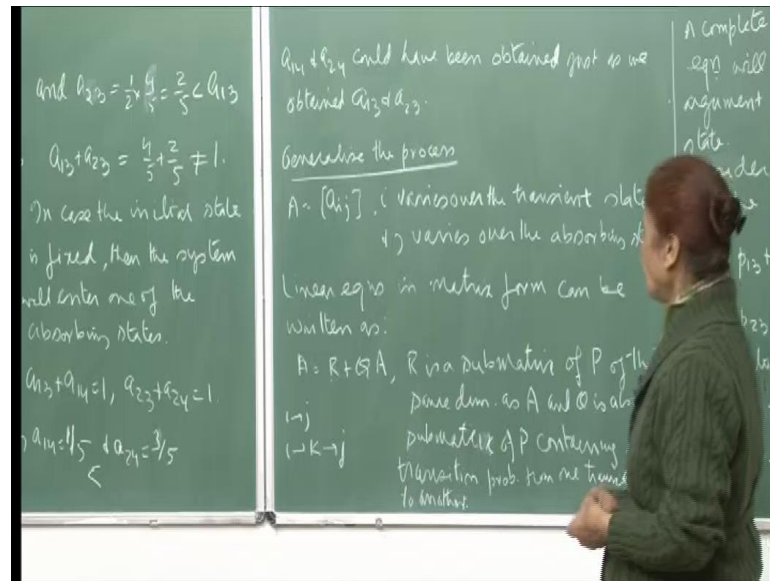 and a₂₃ = 1/2 × 4/5 = 2/5 < a₁₃
a₁₃ + a₂₃ = 4/5 + 2/5 ≠ 1.
In case the initial state
is fixed, then the system
will enter one of the
absorbing states.
a₁₃ + a₁₄ = 1, a₂₃ + a₂₄ = 1.
a₁₄ = 1/5 & a₂₄ = 3/5
<
a₁₄ & a₂₄ could have been obtained just as we
obtained a₁₃ & a₂₃.
Generalise the process
A = [aᵢⱼ], i varies over the transient
& j varies over the absorbing
Linear eqns in matrix form can be
written as:
A = R + QA, R is a submatrix of P of
same dim. as A and Q is
i→j
submatrix of P containing
i→K→j
transition prob. from one
to another.
A complete
eqn will
argument
state.
p₁₃ +